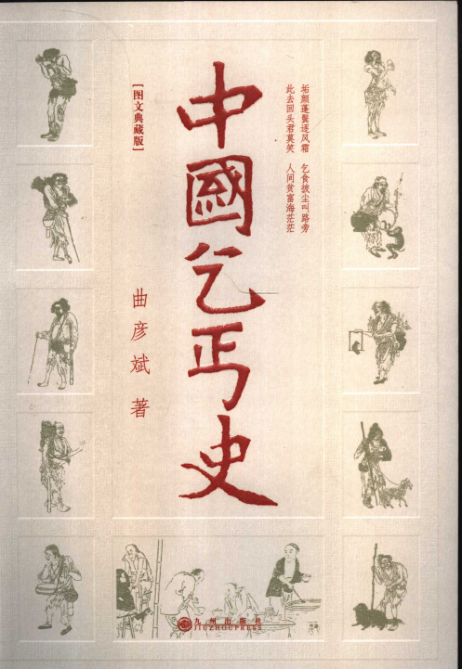 中國乞丐史
[图文典藏版]
垢颜蓬鬓逐风霜 乞食披尘叫路旁
此去回头君莫笑 人间贫富海茫茫
曲彦斌 著
九州出版社
JIUZHOUPRESS